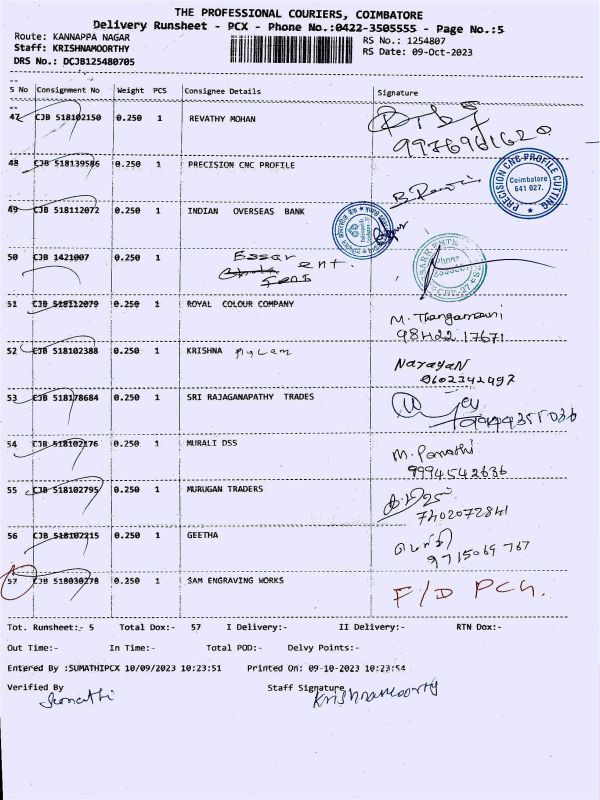 THE PROFESSIONAL COURIERS, COIMBATORE
Delivery Runsheet - PCX - Phone No.:0422-3505555 - Page No.:5
Route: KANNAPPA NAGAR RS No.: 1254807
Staff: KRISHNAMOORTHY RS Date: 09-Oct-2023
DRS No.: DCJB125480705
S No Consignment No Weight PCS Consignee Details Signature
47 CJB 518102150 0.250 1 REVATHY MOHAN
9976961620
48 CJB 518139586 0.250 1 PRECISION CNC PROFILE
PRECISION CNC-PROFILE CUTTING Coimbatore 641 027.
49 CJB 518112072 0.250 1 INDIAN OVERSEAS BANK
50 CJB 1421007 0.250 1 Essar ent.
51 CJB 518112079 0.250 1 ROYAL COLOUR COMPANY M. Thangamani
98422 17671
52 CJB 518102388 0.250 1 KRISHNA Narayan
9602342497
53 CJB 518178684 0.250 1 SRI RAJAGANAPATHY TRADES
54 CJB 518102176 0.250 1 MURALI DSS
9994542636
55 CJB 518102795 0.250 1 MURUGAN TRADERS
7402072841
56 CJB 518102215 0.250 1 GEETHA
9715069767
57 CJB 518030278 0.250 1 SAM ENGRAVING WORKS F/D PCG.
Tot. Runsheet:- 5 Total Dox:- 57 I Delivery:- II Delivery:- RTN Dox:-
Out Time:- In Time:- Total POD:- Delvy Points:-
Entered By :SUMATHIPCX 10/09/2023 10:23:51 Printed On: 09-10-2023 10:23:54
Verified By Staff Signature
Krishnamoorthy